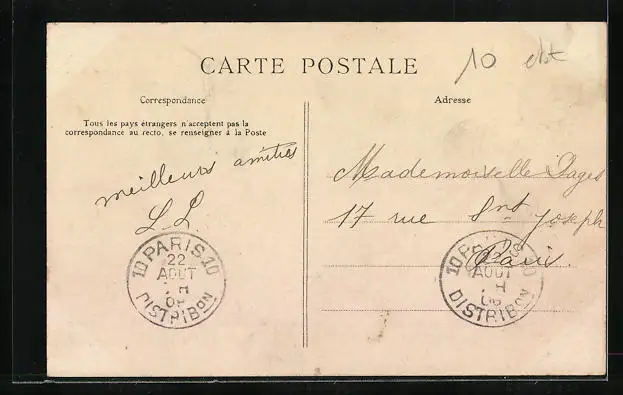 CARTE POSTALE
10 dst
Correspondance
Tous les pays étrangers n'acceptent pas la
correspondance au recto, se renseigner à la Poste
meilleurs amitiés
L. L.
10 PARIS 10
22
AOUT
DISTRIBON
Adresse
Mademoiselle Pages
17 rue Snt Joseph
Paris.
10 10
AOUT
DISTRIBON